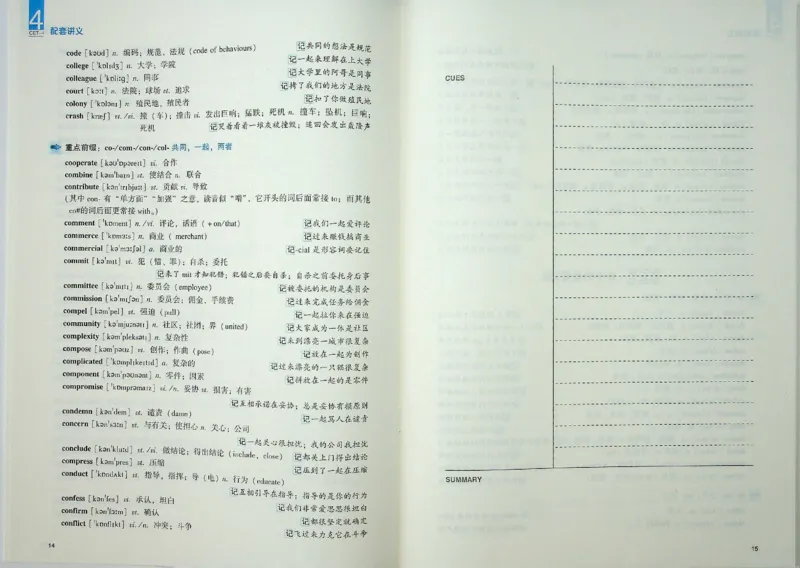 4
CET-4
配套讲义
code [kəʊd] n. 编码;规范,法规 (code of behaviours) 记共同的想法是规范
college ['kɒlɪdʒ] n. 大学;学院 记一起来理解在上大学
colleague ['kɒliːɡ] n. 同事 记大学里的阿哥是同事
court [kɔːt] n. 法院;球场 vt. 追求 记拷了我们的地方是法院
colony ['kɒlənɪ] n. 殖民地,殖民者 记扣了你做殖民地
crash [kræʃ] vt. /vi. 撞(车);撞击 vi. 发出巨响;猛跌;死机 n. 撞车;坠机;巨响;
死机 记哭着看着一堆灰被撞毁;返回会发出轰隆声
重点前缀:co-/com-/con-/col- 共同,一起,两者
cooperate [kəʊ'ɒpəreɪt] vi. 合作
combine [kəm'baɪn] vt. 使结合 n. 联合
contribute [kən'trɪbjuːt] vt. 贡献 vi. 导致
(其中 con- 有“单方面”“加强”之意,读音似“啃”,它开头的词后面常接 to;而其他
co#的词后面更常接 with。)
comment ['kɒment] n. /vi. 评论,话语 (+on/that) 记我们一起爱评论
commerce ['kɒmɜːs] n. 商业 ( merchant) 记过来赚钱搞商业
commercial [kə'mɜːʃəl] a. 商业的 记-cial 是形容词要记住
commit [kə'mɪt] vt. 犯(错、罪);自杀;委托
记来了 mit 才知犯错;犯错之后要自杀;自杀之前委托身后事
committee [kə'mɪtɪ] n. 委员会 (employee) 记被委托的机构是委员会
commission [kə'mɪʃən] n. 委员会;佣金、手续费 记过来完成任务给佣金
compel [kəm'pel] vt. 强迫 (pull) 记一起拉你来在强迫
community [kə'mjuːnətɪ] n. 社区;社团;界 (united) 记大家成为一体是社区
complexity [kəm'pleksətɪ] n. 复杂性 记来到漂亮一城市很复杂
compose [kəm'pəʊz] vt. 创作;作曲 (pose) 记放在一起为创作
complicated ['kɒmplɪkeɪtɪd] a. 复杂的 记过来漂亮的一只猫很复杂
component [kəm'pəʊnənt] n. 零件;因素 记拼放在一起的是零件
compromise ['kɒmprəmaɪz] vi. /n. 妥协 vt. 损害;有害
记互相承诺在妥协;总是妥协有损原则
condemn [kən'dem] vt. 谴责 (damn) 记一起骂人在谴责
concern [kən'sɜːn] vt. 与有关;使担心 n. 关心;公司
记一起关心很担忧;我的公司我担忧
conclude [kən'kluːd] vt. /vi. 做结论;得出结论 (include, close) 记都关上门得出结论
compress [kəm'pres] vt. 压缩 记压到了一起在压缩
conduct ['kɒndʌkt] vt. 指导,指挥;导(电) n. 行为 (educate)
记互相引导在指导;指导的是你的行力
confess [kən'fes] vt. 承认,坦白 记我们非常爱思思很坦白
confirm [kən'fɜːm] vt. 确认 记都很坚定就确定
conflict ['kɒnflɪkt] vi. /n. 冲突;斗争 记飞过来力克它在斗争
14
CUES
SUMMARY
15